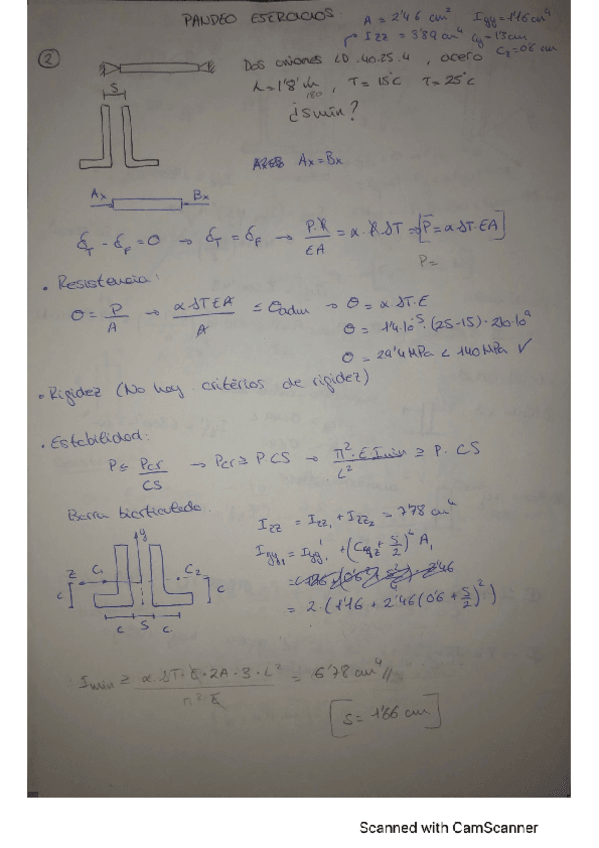 PANDEO EJERCICIOS
A = 2'46 cm² Iyy = 1'16 cm⁴
Izz = 3'89 cm⁴ Cy = 1'3 cm
Cz = 0'6 cm
② Dos uniones LD .40.25.4, acero
L = 1'8 m, T = 15°C T = 25°C
180
S
¿Smín?
Ax = Bx
Ax Bx
δT - δF = 0 → δT = δF → P·l/EA = α·l·ΔT ⇒ [P = α ΔT·EA]
P =
• Resistencia:
σ = P/A → αΔTEA/A ≤ σadm → σ = α ΔT·E
σ = 1'4·10⁻⁵·(25-15)·210·10⁹
σ = 29'4 MPa < 140 MPa ✓
• Rigidez (No hay criterios de rigidez)
• Estabilidad:
P ≤ Pcr/CS → Pcr ≥ P CS → π²·E Imin/L² ≥ P·CS
Barra biarticulada
Izz = Izz₁ + Izz₂ = 7'78 cm⁴
y
z C₁ C₂ c c
c S c
= 2·(1'16 + 2'46(0'6 + S/2)²)
Imin ≥ α·ΔT·E·2A·3·L²/π²·E = 6'78 cm⁴//
[S = 1'66 cm]
Scanned with CamScanner